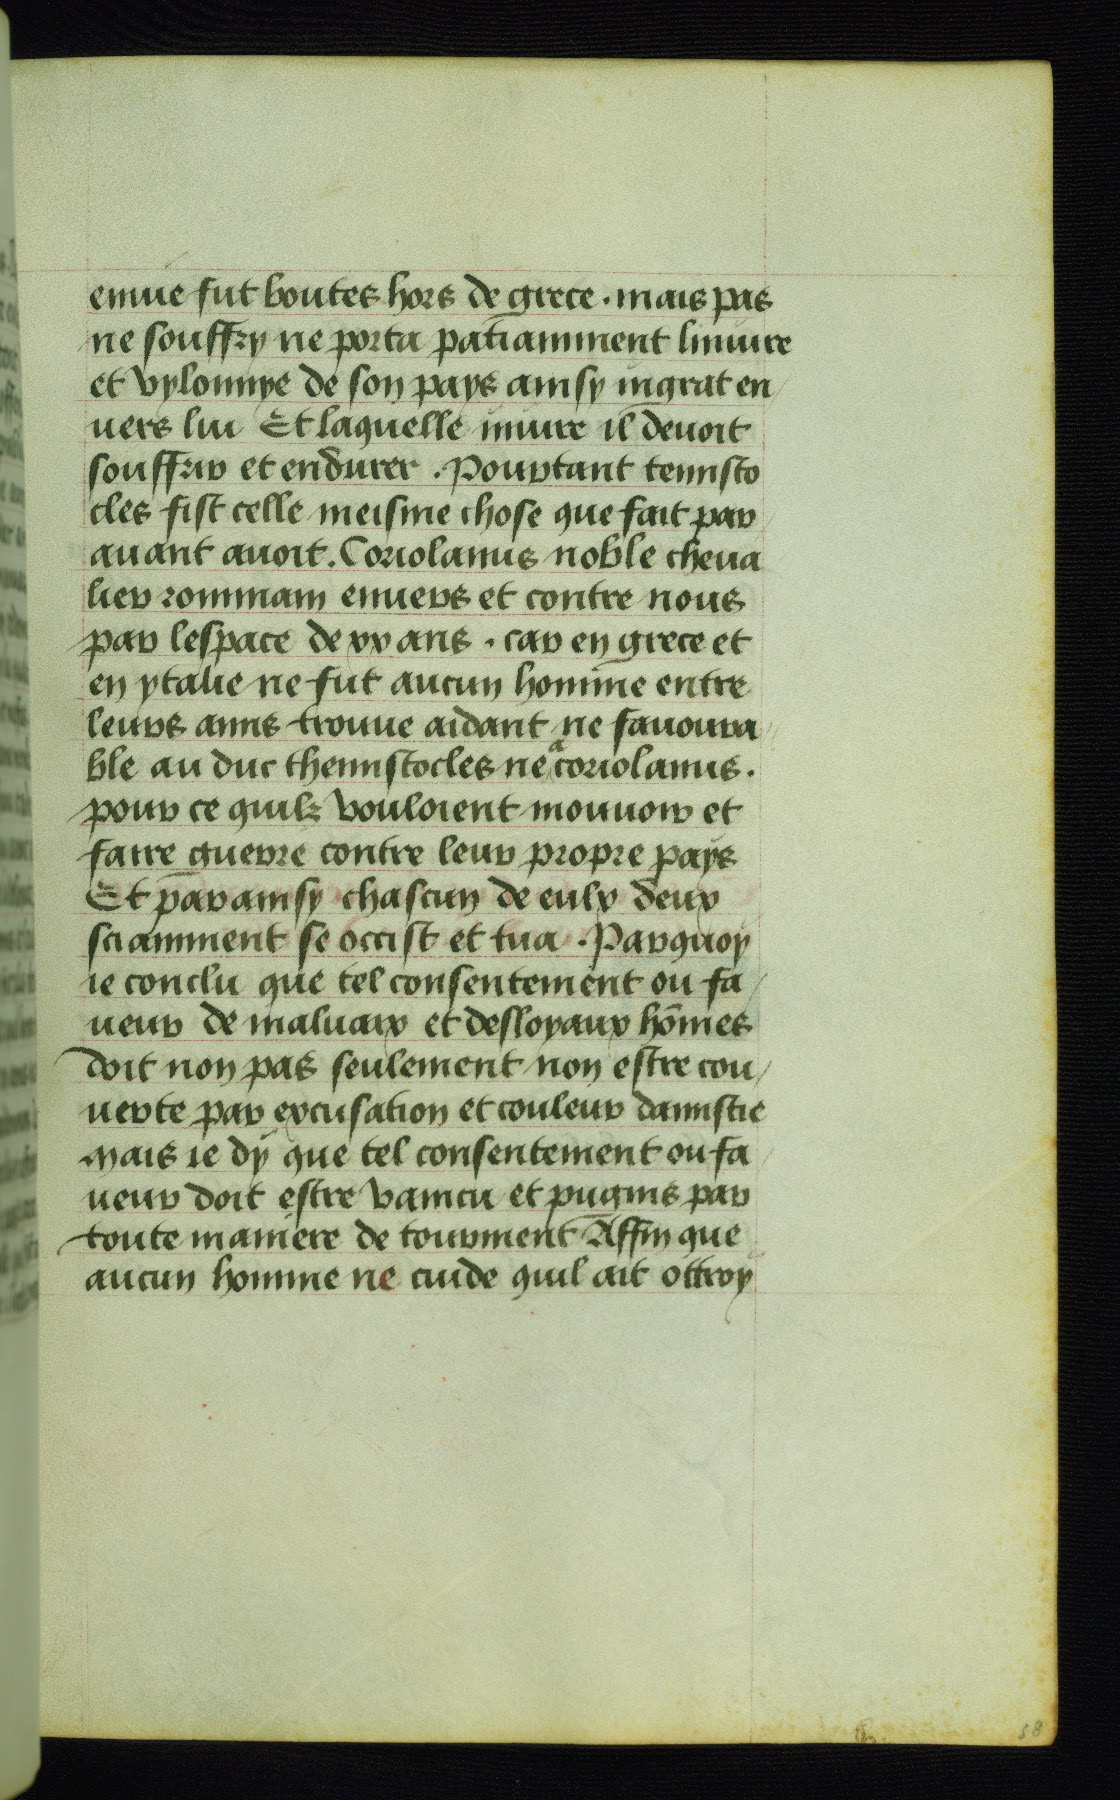 enuie fut boutes hors de grece . mais pas
ne souffry ne porta patiamment liniure
et vylonnye de son pays ainsy ingrat en
uers lui Et laquelle iniure il deuoit
souffrir et endurer . Pourtant temisto
cles fist celle meisme chose que fait par
auant auoit . Coriolanus noble cheua
lier rommain enuers et contre nous
par lespace de xx ans . car en grece et
en ytalie ne fut aucun homme entre
leurs amis trouue aidant ne fauoura
ble au duc themistocles ne a coriolanus .
pour ce quilz vouloient mouuoir et
faire guerre contre leur propre pays
Et par ainsy chascun de eulx deux
sciamment se occist et tua . Parquoy
ie conclu que tel consentement ou fa
ueur de maluaix et desloyaux hom̄es
doit non pas seulement non estre cou
uerte par excusation et couleur damistie
mais ie dy que tel consentement ou fa
ueur doit estre vaincu et pugnis par
toute maniere de tourment Affin que
aucun homme ne cuide quil ait ottroy
58